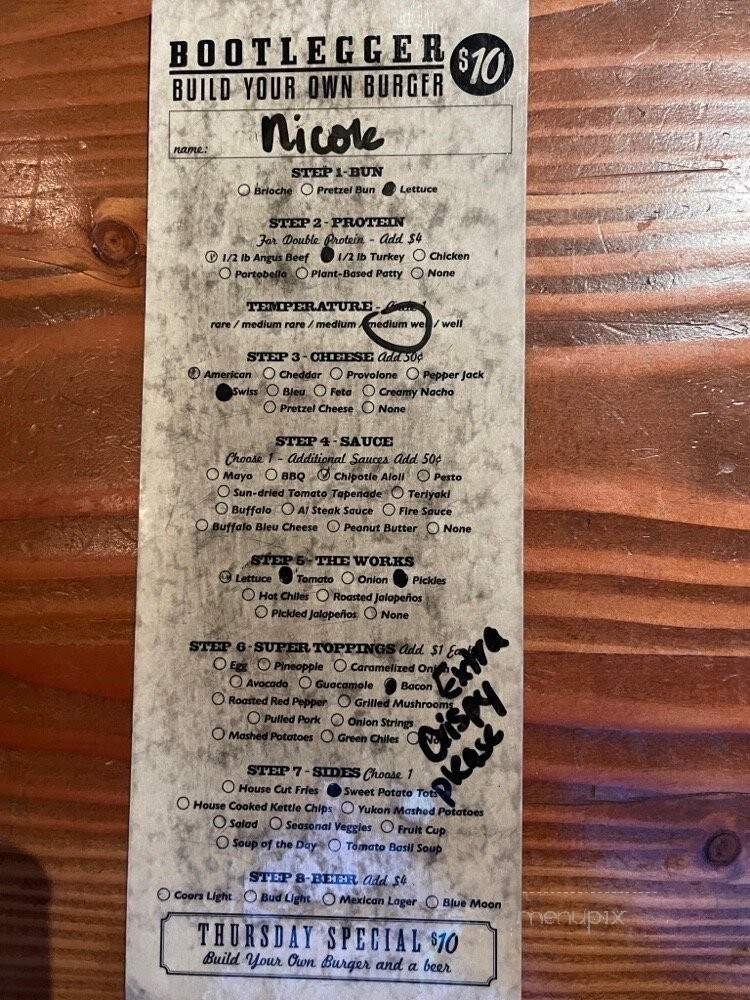 BOOTLEGGER $10
BUILD YOUR OWN BURGER
name: Nicole
STEP 1-BUN
Brioche Pretzel Bun Lettuce
STEP 2 - PROTEIN
For Double Protein - Add $4
1/2 lb Angus Beef 1/2 lb Turkey Chicken
Portobello Plant-Based Patty None
TEMPERATURE -
rare / medium rare / medium / medium well / well
STEP 3 - CHEESE add 50¢
American Cheddar Provolone Pepper Jack
Swiss Bleu Feta Creamy Nacho
Pretzel Cheese None
STEP 4 - SAUCE
Choose 1 - Additional Sauces Add 50¢
Mayo BBQ Chipotle Aioli Pesto
Sun-dried Tomato Tapenade Teriyaki
Buffalo A1 Steak Sauce Fire Sauce
Buffalo Bleu Cheese Peanut Butter None
STEP 5 - THE WORKS
Lettuce Tomato Onion Pickles
Hot Chiles Roasted Jalapeños
Pickled Jalapeños None
STEP 6 - SUPER TOPPINGS add $1 Each
Egg Pineapple Caramelized Onion
Avocado Guacamole Bacon
Roasted Red Pepper Grilled Mushrooms
Pulled Pork Onion Strings
Mashed Potatoes Green Chiles
Extra
Crispy
please
STEP 7 - SIDES Choose 1
House Cut Fries Sweet Potato Tots
House Cooked Kettle Chips Yukon Mashed Potatoes
Salad Seasonal Veggies Fruit Cup
Soup of the Day Tomato Basil Soup
STEP 8-BEER add $4
Coors Light Bud Light Mexican Lager Blue Moon
THURSDAY SPECIAL $10
Build Your Own Burger and a beer
menupix